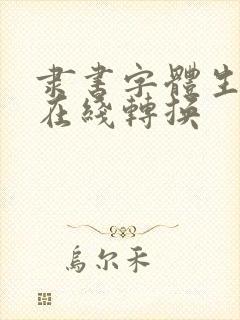 隶書字體生
在綫轉換
烏尔禾